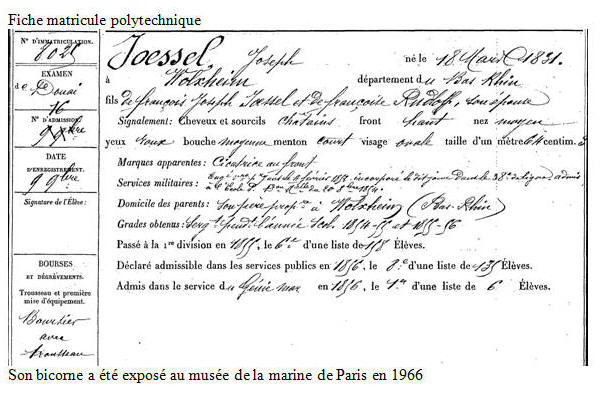 Fiche matricule polytechnique
N° D'IMMATRICULATION.
8025
EXAMEN
de Douai
16
N° D'ADMISSION
DATE
D'ENREGISTREMENT.
9 9bre
Signature de l'Élève:
BOURSES
ET DÉGRÈVEMENTS.
Trousseau et première
mise d'équipement.
Boursier
avec
trousseau
Joessel, Joseph né le 18 Mars 1831.
à Wolxheim département du Bas Rhin
fils de françois Joseph Joessel et de françoise Rudloff, son épouse
Signalement: Cheveux et sourcils chatains front haut nez moyen
yeux roux bouche moyenne menton court visage ovale taille d'un mètre 64 centim.
Marques apparentes: Cicatrice au front
Services militaires: incorporé le dit jour dans le 38e de ligne, admis
à l'École
Domicile des parents: Son père prop.re à Wolxheim (Bas-Rhin)
Grades obtenus: Sergt pendt l'année Scol. 1854-55 et 1855-56
Passé à la 1re division en 1855, le 6e d'une liste de 118 Élèves.
Déclaré admissible dans les services publics en 1856, le 8e d'une liste de 135 Élèves.
Admis dans le service du Génie mar en 1856, le 1er d'une liste de 6 Élèves.
Son bicorne a été exposé au musée de la marine de Paris en 1966